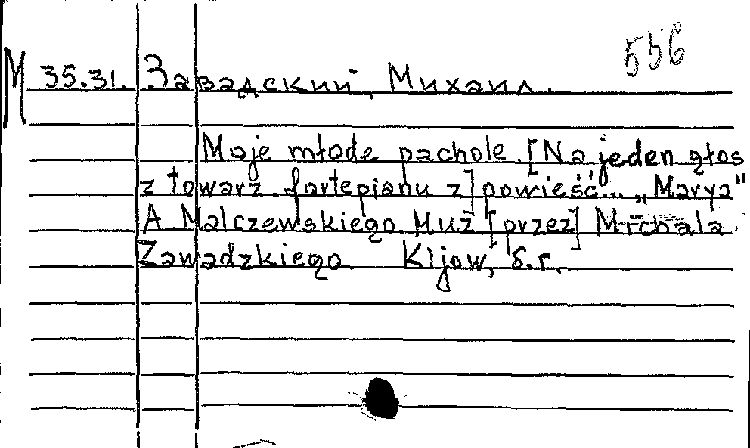 556
M 35.31. Завадский, Михаил.
Moje młode pachole [Na jeden głos
z towarz fortepianu z] powieść... „Marya"
A Malczewskiego Muz [przez] Michala
Zawadzkiego Kijow, S.r.